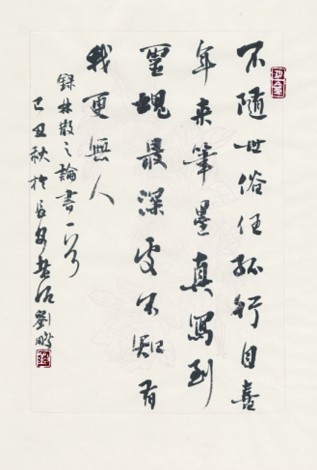 不隨世俗任孤行自喜
年来筆墨真寫到
靈魂最深處不知有
我更無人
錄林散之論書一首
己丑秋於長安劉鵬